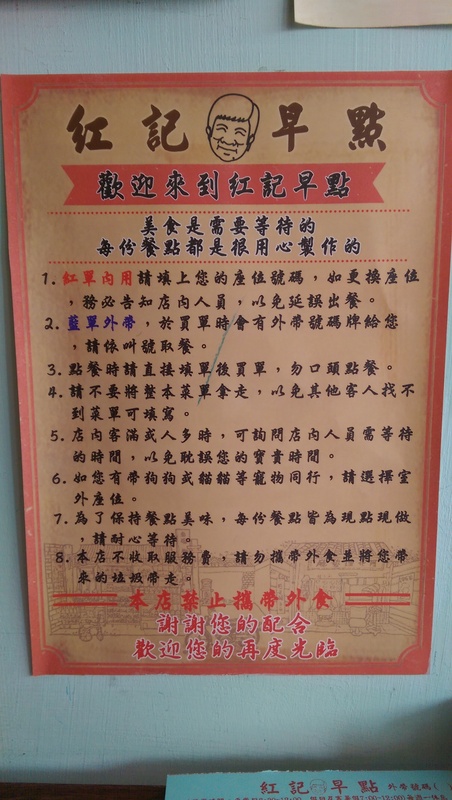 紅記早點
歡迎來到紅記早點
美食是需要等待的
每份餐點都是很用心製作的
1. 紅單內用請填上您的座位號碼，如更換座位
，務必告知店內人員，以免延誤出餐。
2. 藍單外帶，於買單時會有外帶號碼牌給您
，請依叫號取餐。
3. 點餐時請直接填單後買單，勿口頭點餐。
4. 請不要將整本菜單拿走，以免其他客人找不
到菜單可填寫。
5. 店內客滿或人多時，可詢問店內人員需等待
的時間，以免耽誤您的寶貴時間。
6. 如您有帶狗狗或貓貓等寵物同行，請選擇室
外座位。
7. 為了保持餐點美味，每份餐點皆為現點現做
，請耐心等待。
8. 本店不收取服務費，請勿攜帶外食並將您帶
來的垃圾帶走。
本店禁止攜帶外食
謝謝您的配合
歡迎您的再度光臨
紅記早點 外帶號碼(